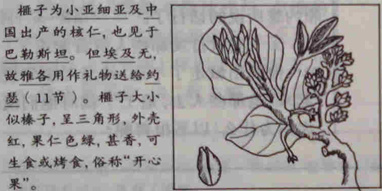 榧子为小亚细亚及中
国出产的核仁，也见于
巴勒斯坦。但埃及无，
故雅各用作礼物送给约
瑟（11节）。榧子大小
似榛子，呈三角形，外壳
红，果仁色绿，甚香，可
生食或烤食，俗称“开心
果”。